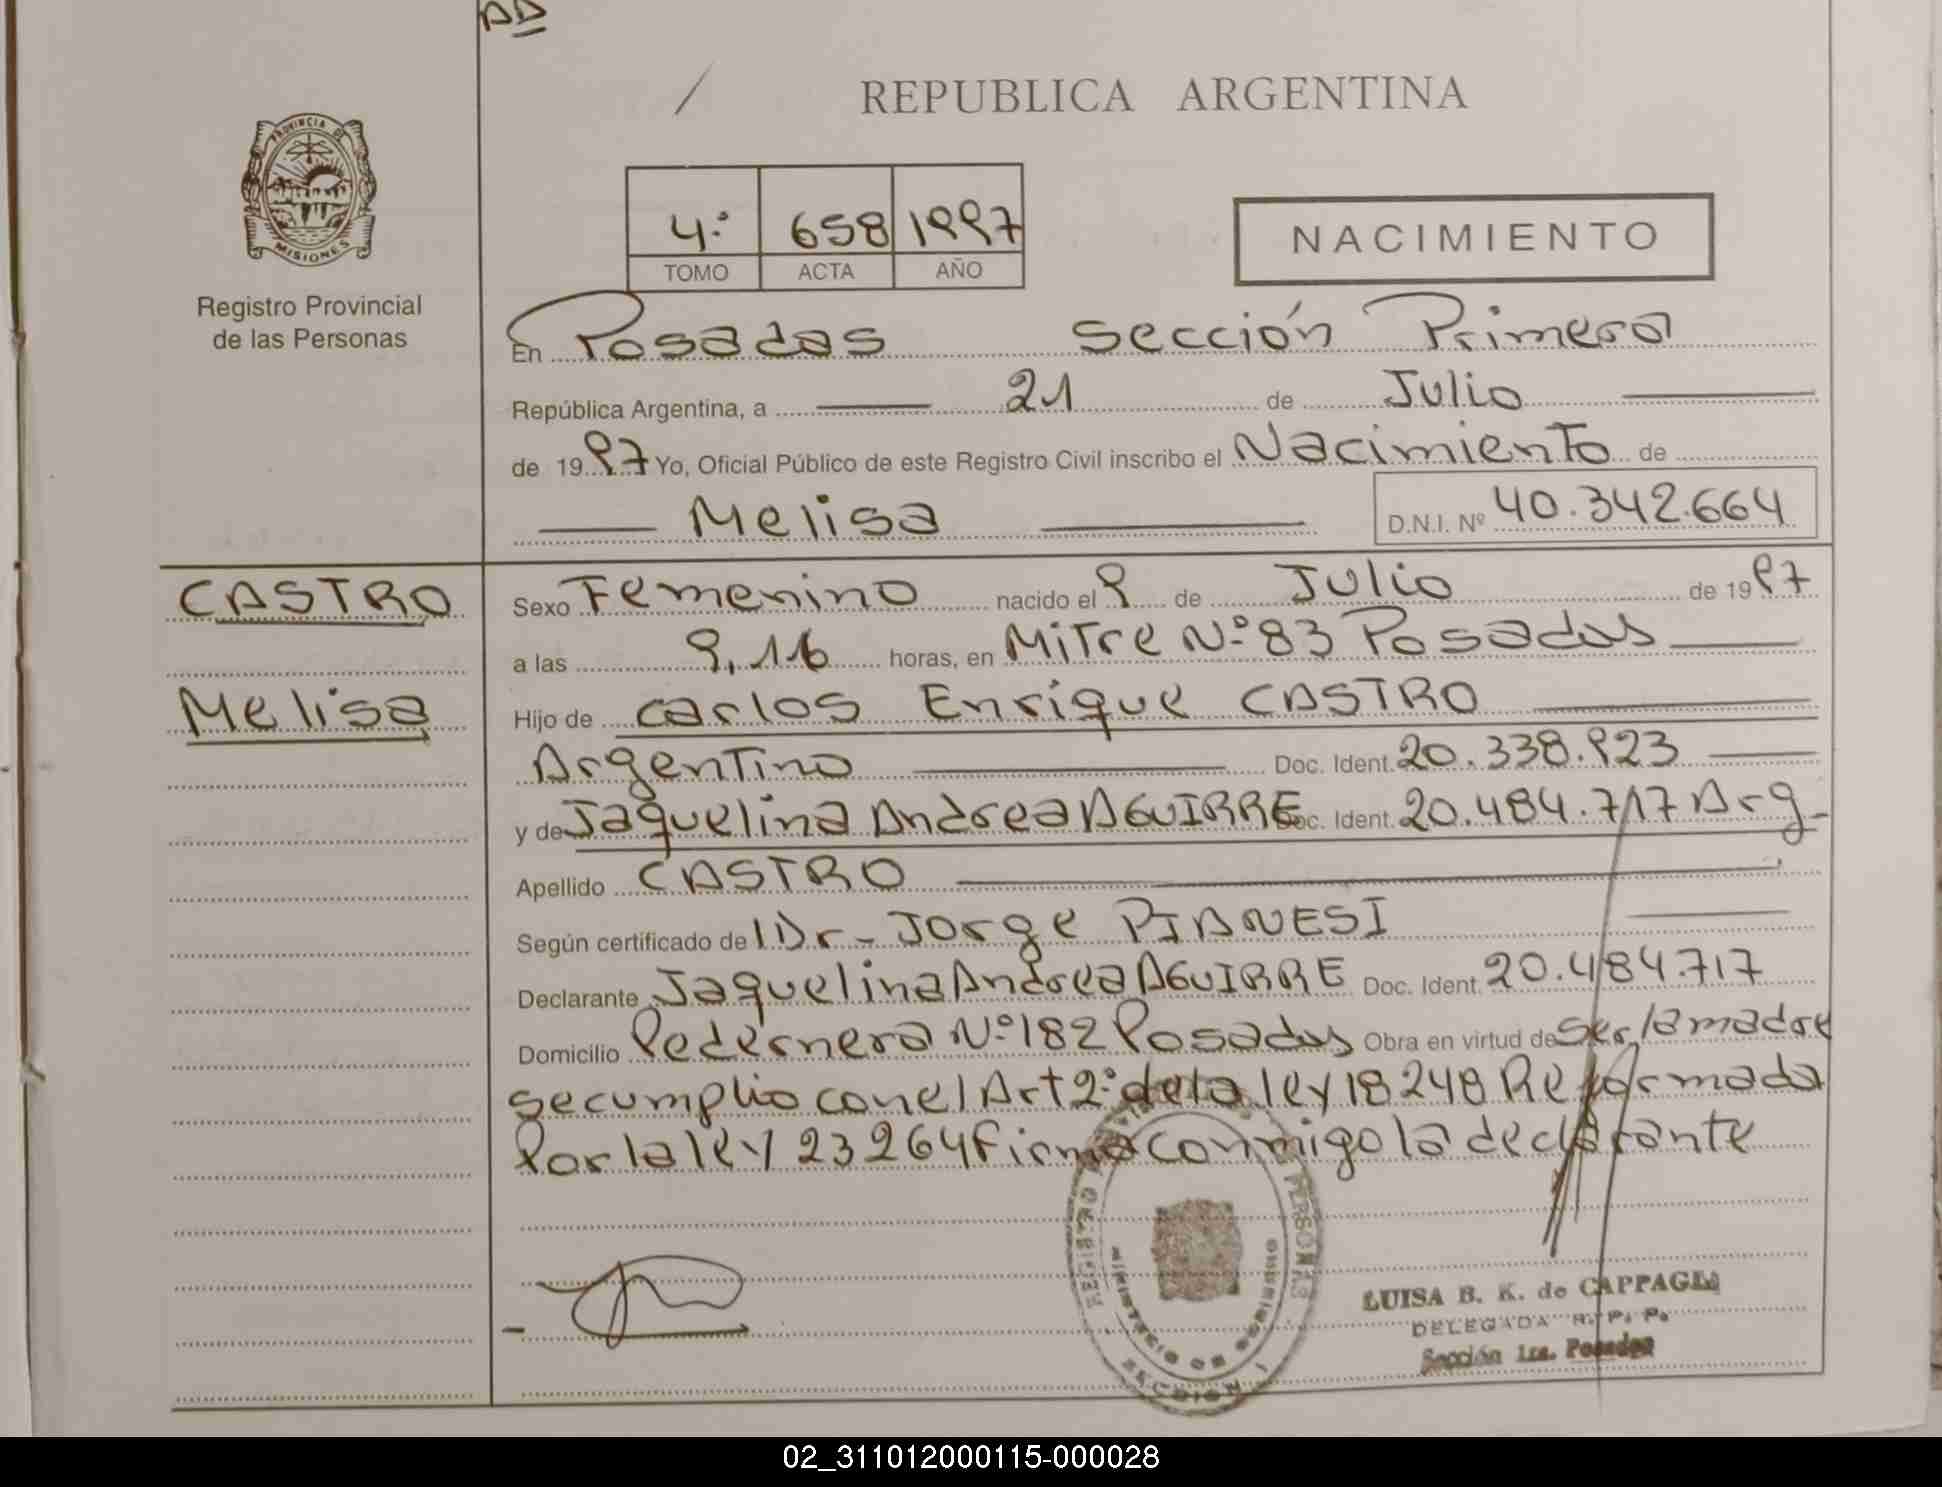 AA
REPUBLICA ARGENTINA
PROVINCIA DE
MISIONES
Registro Provincial
de las Personas
4º 658 1997
TOMO ACTA AÑO
NACIMIENTO
En Posadas Sección Primera
República Argentina, a 21 de Julio
de 1997 Yo, Oficial Público de este Registro Civil inscribo el Nacimiento de
Melisa D.N.I. Nº 40.342.664
CASTRO
Melisa
Sexo Femenino nacido el 9 de Julio de 1997
a las 9,16 horas, en Mitre Nº 83 Posadas
Hijo de Carlos Enrique CASTRO
Argentino Doc. Ident. 20.338.923
y de Jaquelina Andrea AGUIRRE Doc. Ident. 20.484.717 Arg
Apellido CASTRO
Según certificado de Dr. Jorge PIANESI
Declarante Jaquelina Andrea AGUIRRE Doc. Ident. 20.484.717
Domicilio Pedernera Nº 182 Posadas Obra en virtud de ser la madre
se cumplio con el Art 2º de la ley 18248 Reformada
Por la ley 23264 firma conmigo la declarante
REGISTRO PERSONAS
MINISTERIO DE GOBIERNO
SECCION 1
LUISA B. K. de CAPPAGLI
DELEGADA R. P. P.
Sección 1ra. Posadas
02_311012000115-000028